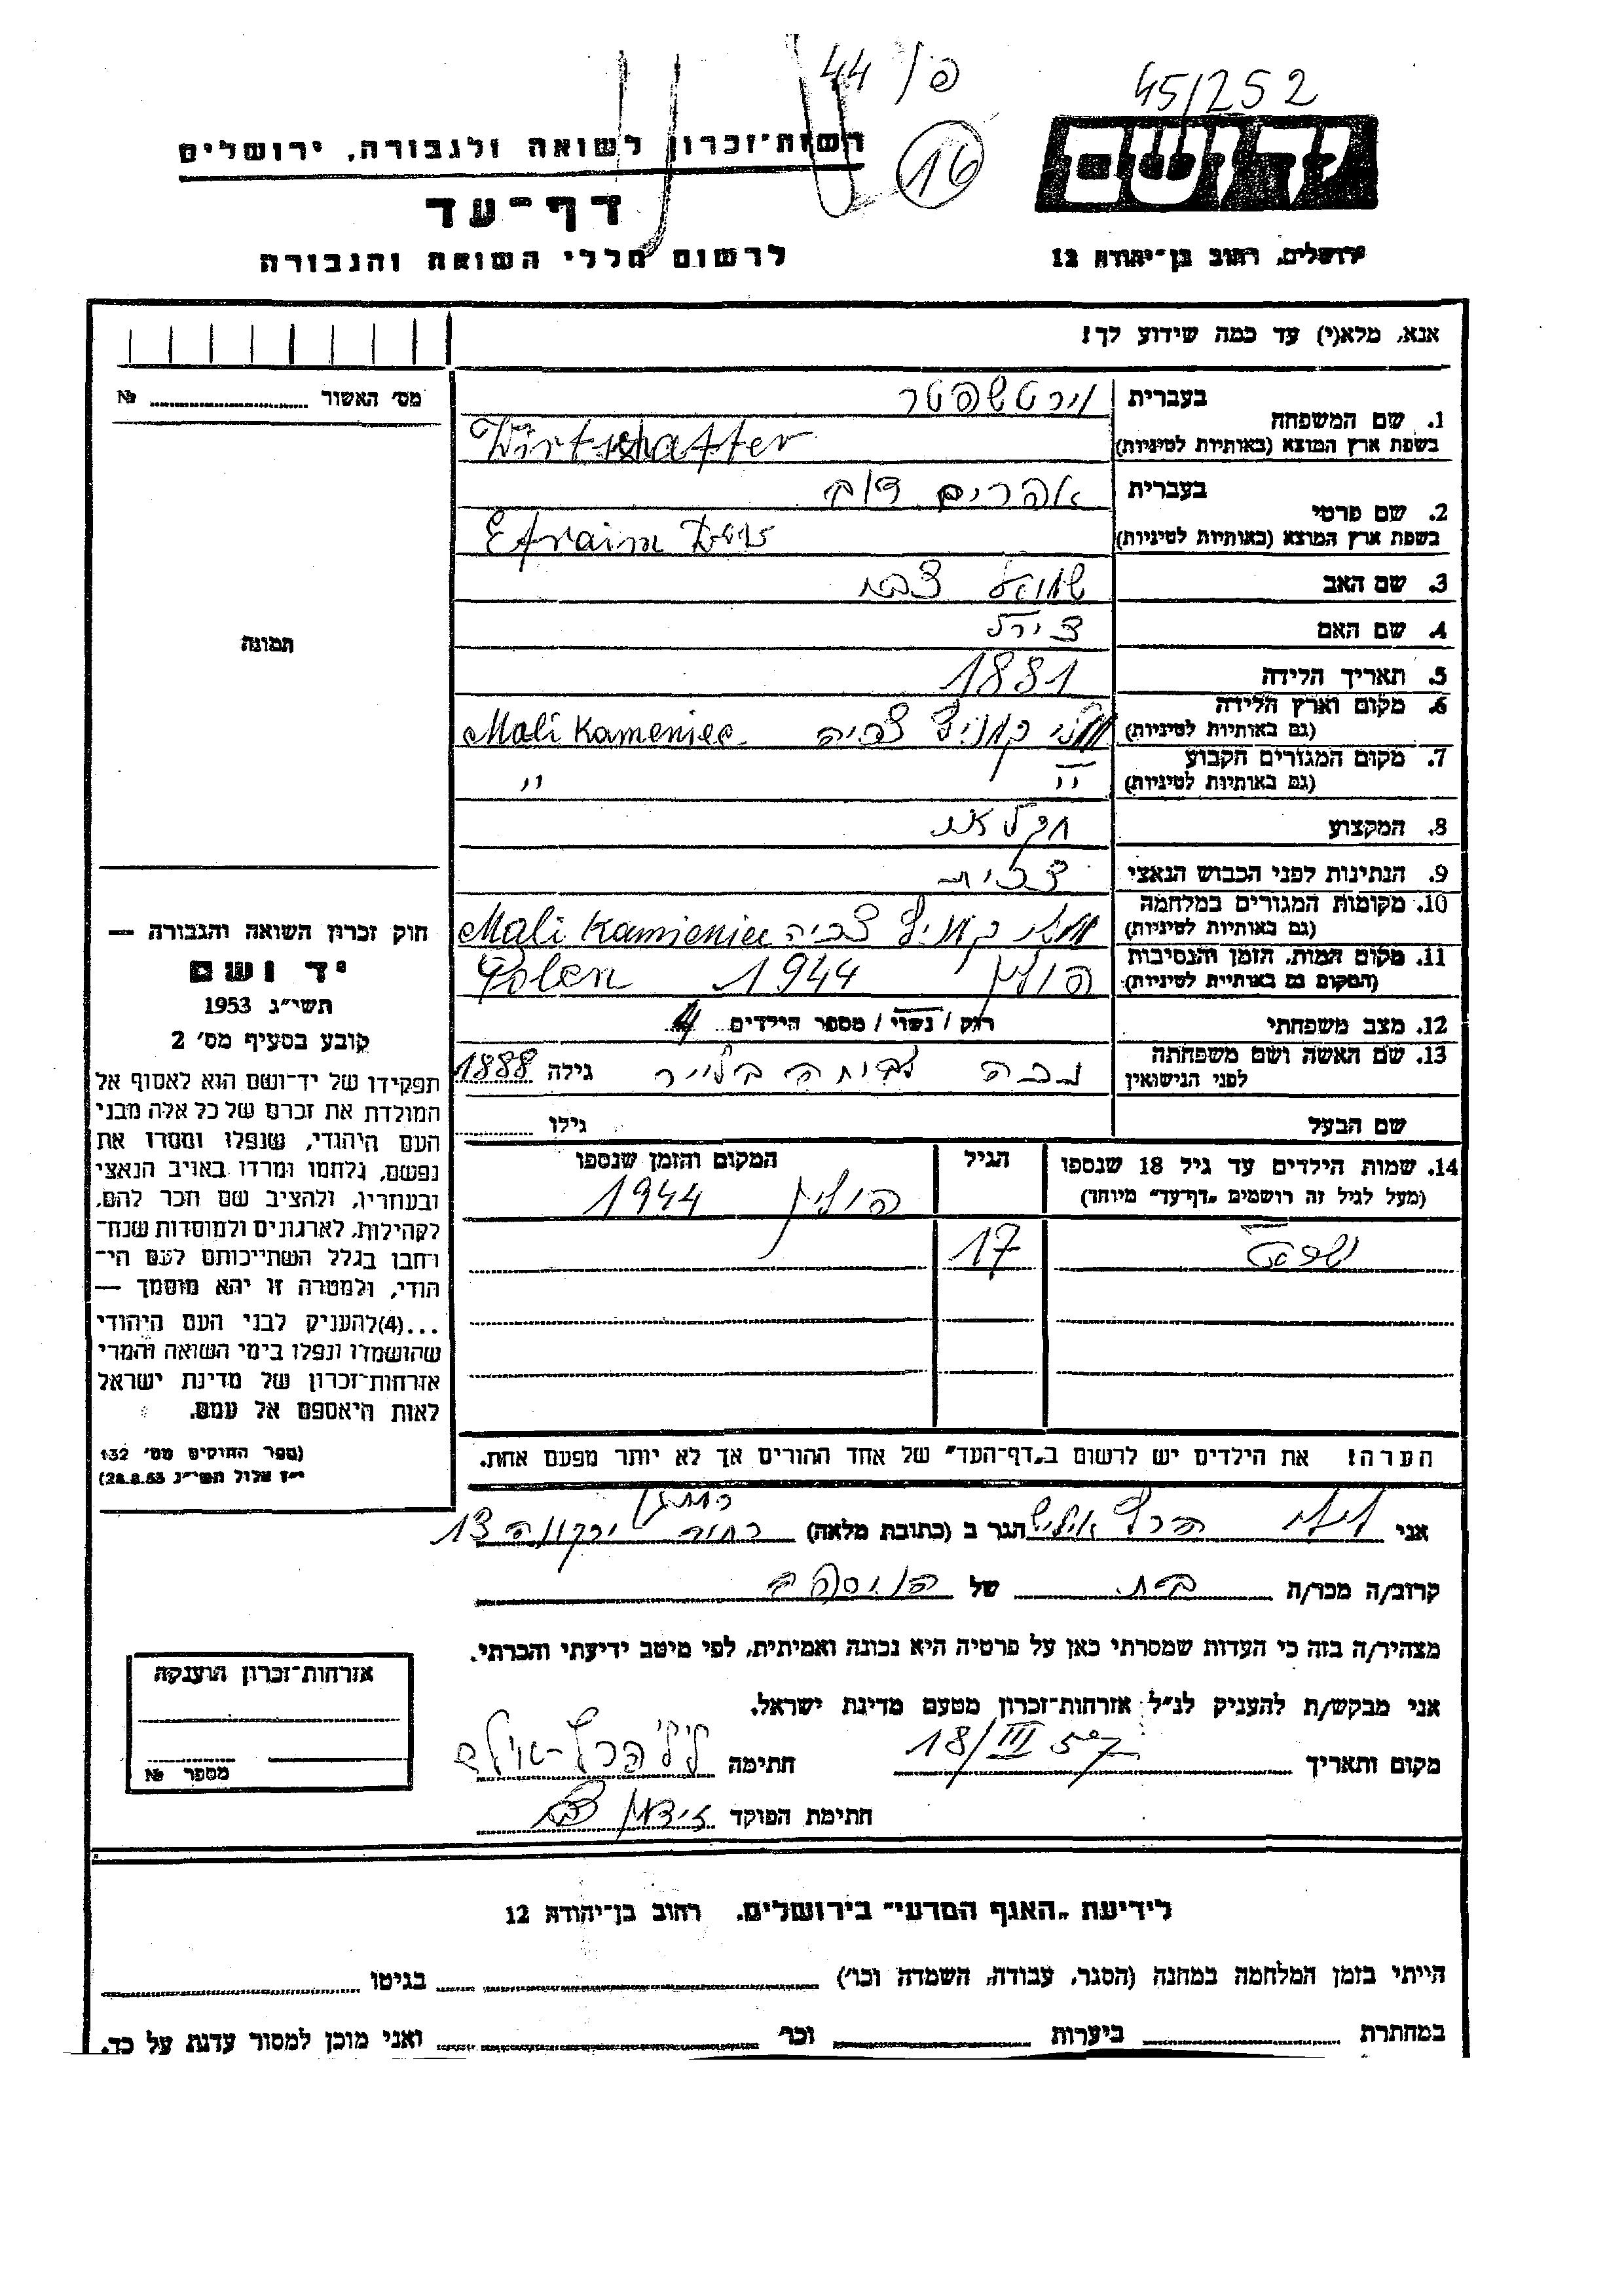 44 / פ
45/252
16
רשות־זכרון לשואה ולגבורה, ירושלים
יד ושם
דף־עד
לרשום חללי השואה והגבורה
ירושלים, רחוב בן־יהודה 12
אנא, מלא(י) עד כמה שידוע לך!
מס׳ האשור № 
1. שם המשפחה
בעברית וירטשפטר
בשפת ארץ המוצא (באותיות לטיניות) Wirtschafter
2. שם פרטי
בעברית אפרים דוב
בשפת ארץ המוצא (באותיות לטיניות) Efraim
3. שם האב שמואל
4. שם האם צירל
5. תאריך הלידה 1881
6. מקום וארץ הלידה
(גם באותיות לטיניות) Mali Kameniec
7. מקום המגורים הקבוע
(גם באותיות לטיניות) " "
8. המקצוע חקלאי
9. הנתינות לפני הכבוש הנאצי
10. מקומות המגורים במלחמה
(גם באותיות לטיניות) Mali Kamieniec
11. מקום המות, הזמן והנסיבות
(המקום גם באותיות לטיניות) פולין 1944 Polen
12. מצב משפחתי רווק / נשוי / מספר הילדים 4
13. שם האשה ושם משפחתה
לפני הנישואין גילה 1888
שם הבעל גילו
14. שמות הילדים עד גיל 18 שנספו
(מעל לגיל זה רושמים „דף־עד” מיוחד)
הגיל
המקום והזמן שנספו
פולין 1944
17
הערה! את הילדים יש לרשום ב„דף־העד” של אחד ההורים אך לא יותר מפעם אחת.
תמונה
חוק זכרון השואה והגבורה —
יד ושם
תשי״ג 1953
קובע בסעיף מס׳ 2
תפקידו של יד־ושם הוא לאסוף אל
המולדת את זכרם של כל אלה מבני
העם היהודי, שנפלו ומסרו את
נפשם, נלחמו ומרדו באויב הנאצי
ובעוזריו, ולהציב שם וזכר להם,
לקהילות, לארגונים ולמוסדות שנח־
רבו בגלל השתייכותם לעם הי־
הודי, ולמטרה זו יהא מוסמך —
...(4)להעניק לבני העם היהודי
שהושמדו ונפלו בימי השואה והמרי
אזרחות־זכרון של מדינת ישראל
לאות היאספם אל עמם.
(ספר החוקים מס׳ 132
י״ז אלול תשי״ג 28.8.53)
אני לילי הרץ הגר ב (כתובת מלאה) רחוב 13
קרוב/ה מכר/ה בת של הנוספה
מצהיר/ה בזה כי העדות שמסרתי כאן על פרטיה היא נכונה ואמיתית, לפי מיטב ידיעתי והכרתי.
אני מבקש/ת להעניק לנ״ל אזרחות־זכרון מטעם מדינת ישראל.
מקום ותאריך 18/III 57 חתימה
חתימת הפוקד
אזרחות־זכרון הוענקה
מספר №
לידיעת „האגף המדעי” בירושלים, רחוב בן־יהודה 12
הייתי בזמן המלחמה במחנה (הסגר, עבודה, השמדה וכו׳) בגיטו
במחתרת ביערות וכו׳ ואני מוכן למסור עדות על כך.